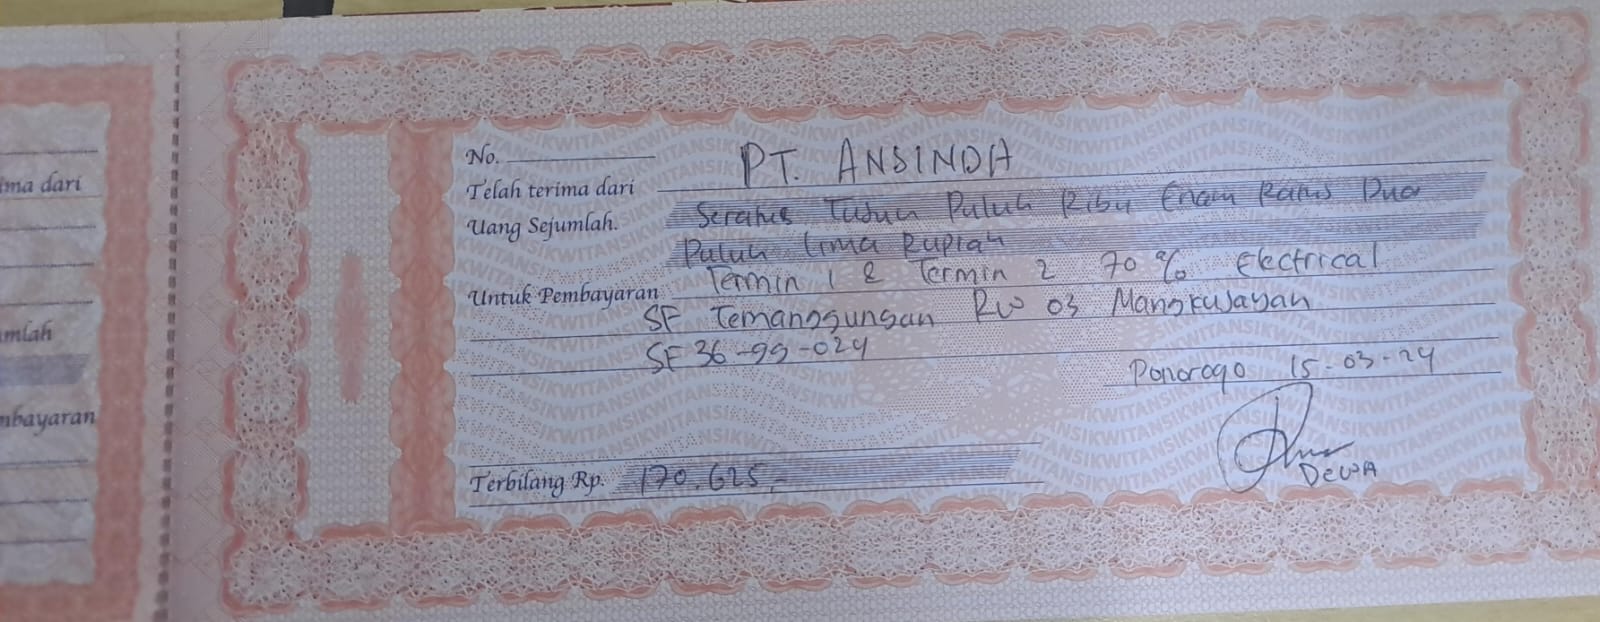 ima dari
mlah
mbayaran
No.
Telah terima dari PT. ANSINDA
Uang Sejumlah. Seratus Tujuh Puluh Ribu Enam Ratus Dua
Puluh Lima Rupiah
Untuk Pembayaran Termin 1 & Termin 2 70 % Electrical
SF Temanggungan RW 03 Mangkujayan
SF 36-99-024
Ponorogo 15-03-24
Terbilang Rp. 170.625,-
DEWA